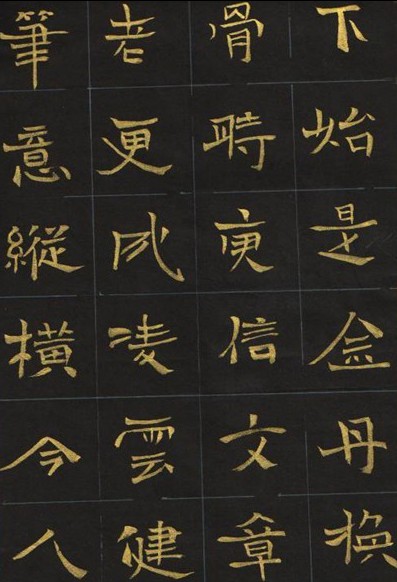 下始是金丹換
骨時庾信文章
老更成凌雲健
筆意縱橫今人